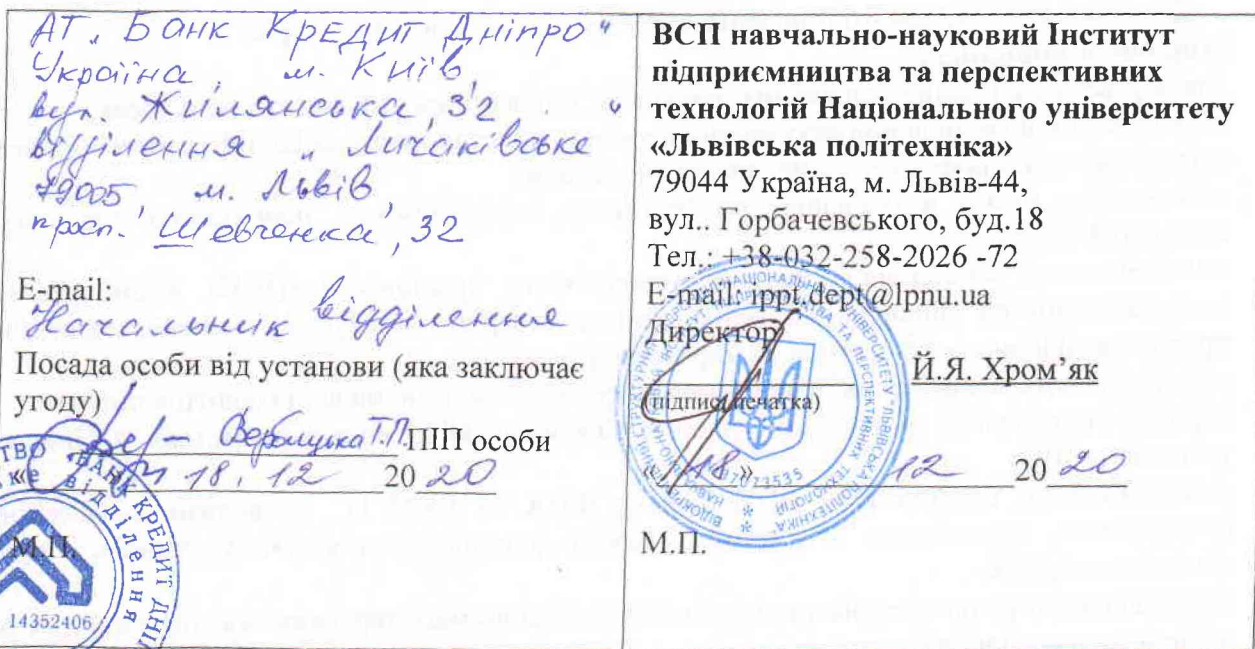 АТ „Банк Кредит Дніпро“
Україна, м. Київ,
вул. Жилянська, 32
відділення „Личаківське“
79005, м. Львів,
просп. Шевченка, 32
E-mail:
Начальник відділення
Посада особи від установи (яка заключає
угоду)
Т.П. ПІП особи
« » 18. 12 2020
М.П.
БАНК КРЕДИТ
відділення
14352406
ВСП навчально-науковий Інститут
підприємництва та перспективних
технологій Національного університету
«Львівська політехніка»
79044 Україна, м. Львів-44,
вул.. Горбачевського, буд.18
Тел.: +38-032-258-2026 -72
E-mail: ippt.dept@lpnu.ua
Директор
Й.Я. Хром’як
(підпис, печатка)
«18» 12 2020
М.П.